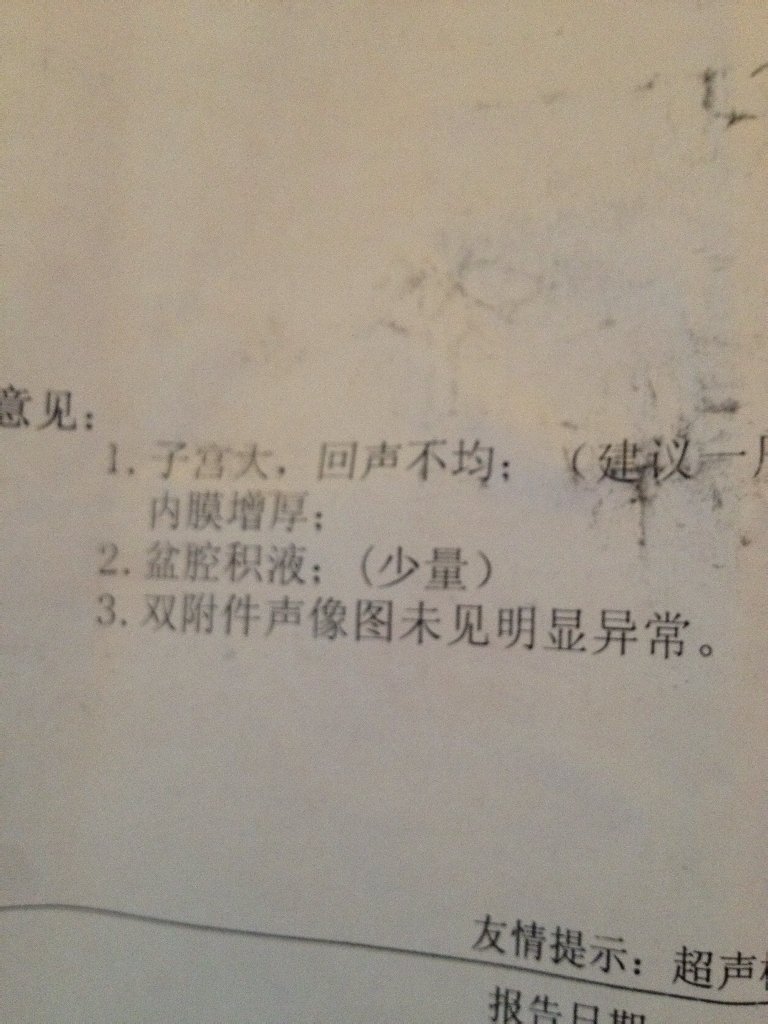 意见：
1. 子宫大，回声不均；（建议一
内膜增厚；
2. 盆腔积液；(少量）
3. 双附件声像图未见明显异常。
友情提示：超声
报告日期